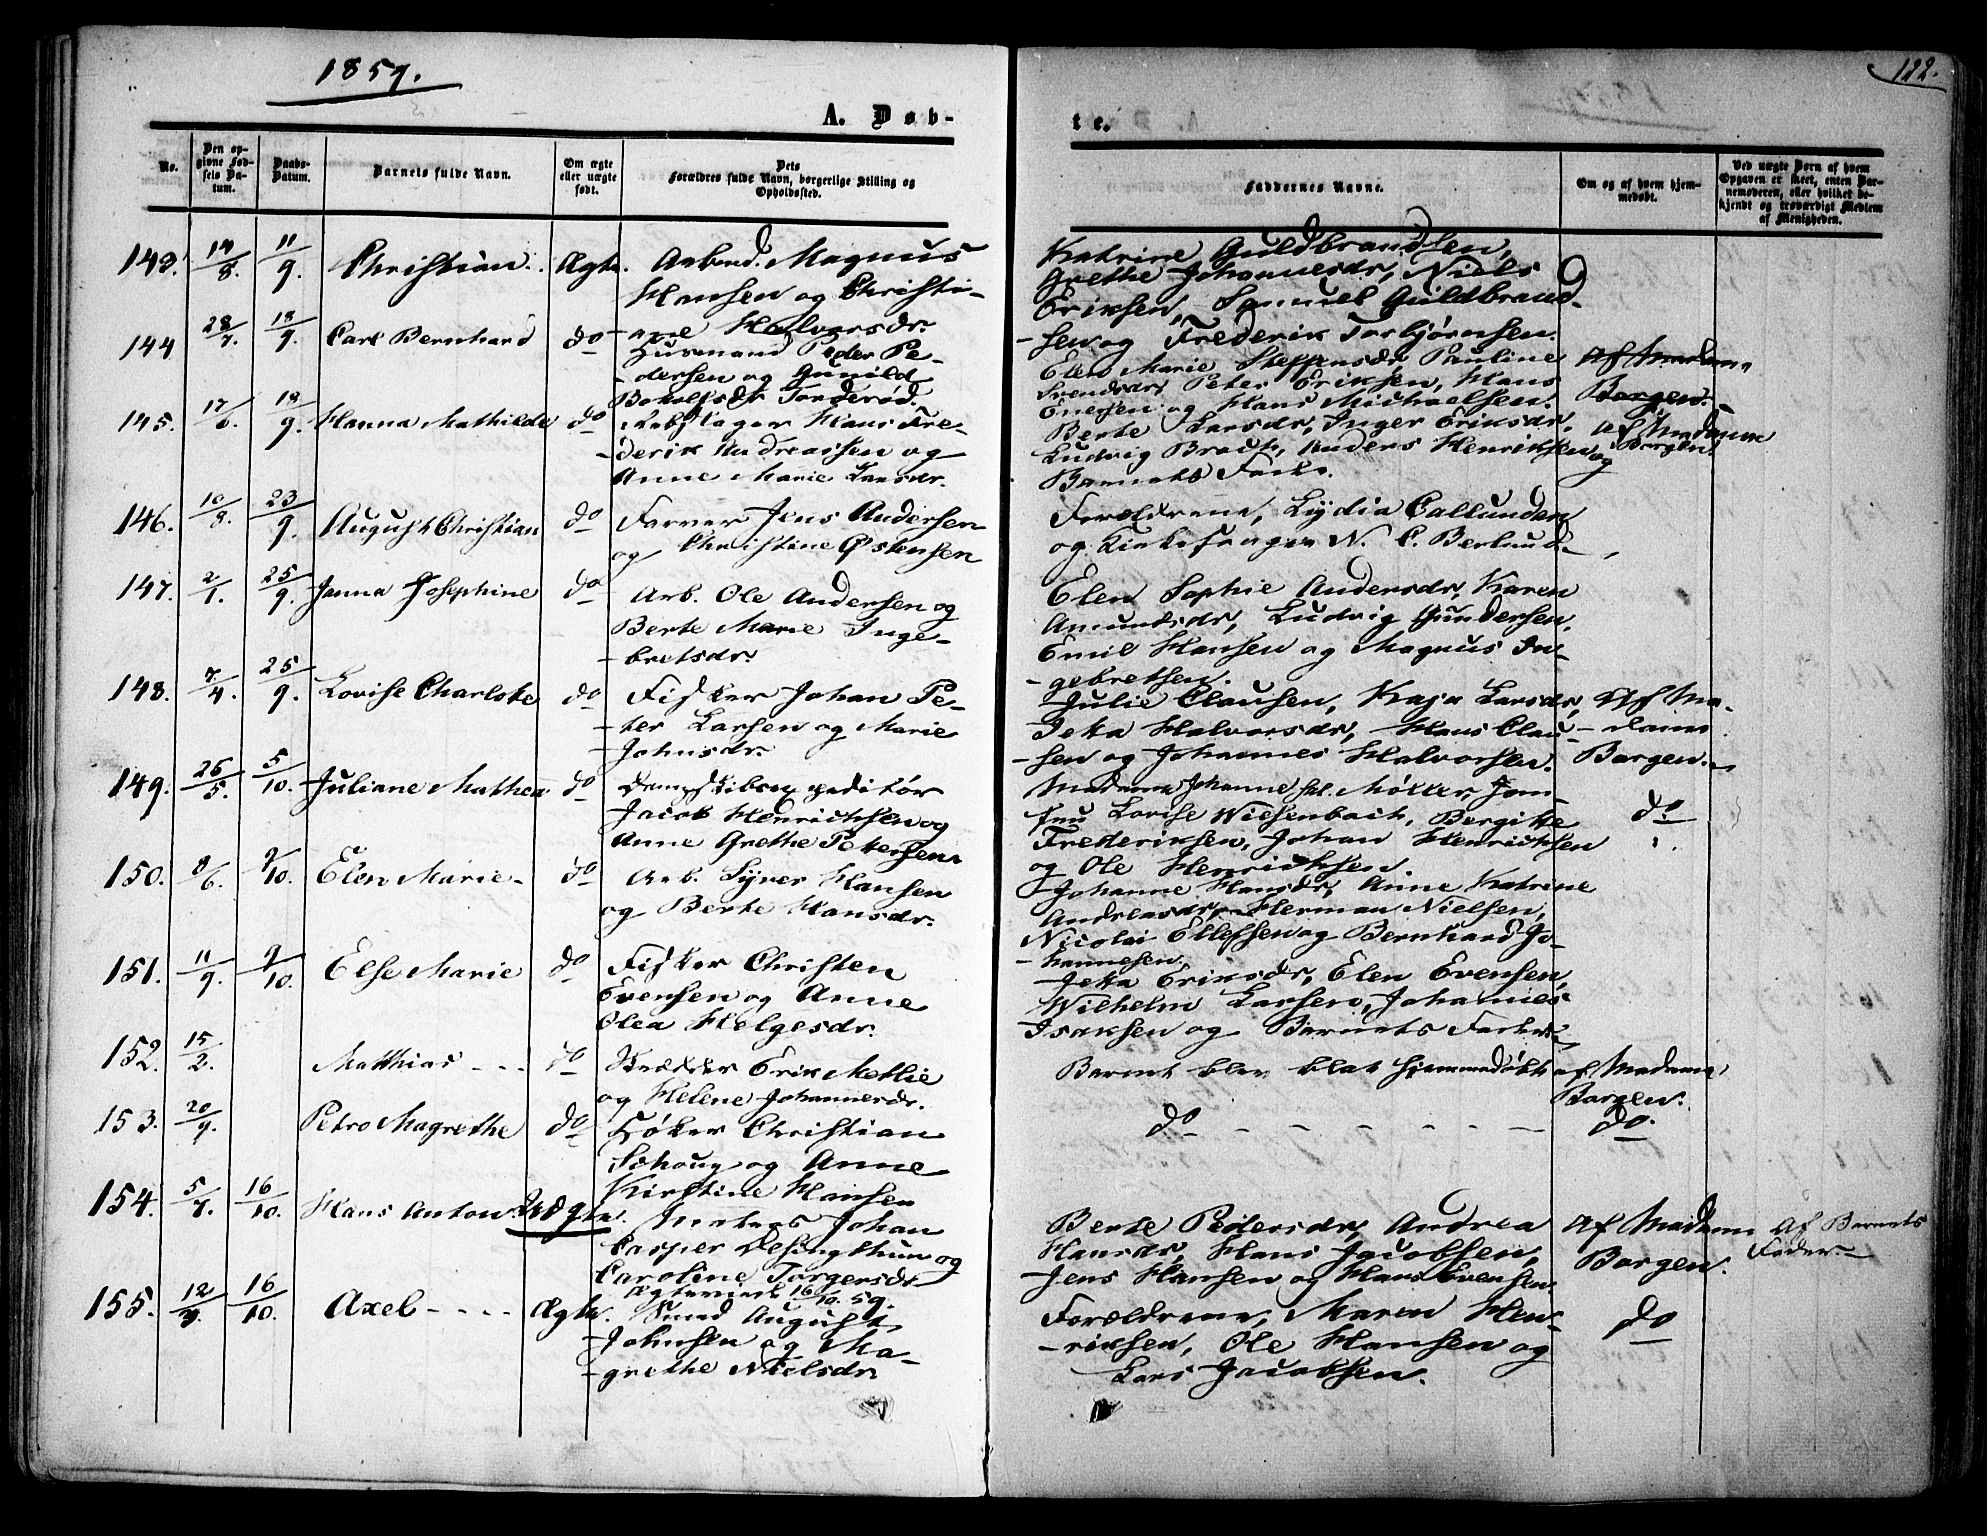 1859.
122.
A. Døb-
te.
No.
Den op-
givne Fød-
sels Da-
tum.
Daabs-
Datum.
Barnets fulde Navn.
Om ægte
eller uægte
født.
Dets
Forældres fulde Navn, borgerlige Stilling og
Opholdssted.
Faddernes Navne.
Om og af hvem hjem-
medøbt.
Ved uægte Børn af hvem
Opgaven er skeet, enten Bar-
nemoderen, eller hvilket be-
kjendt og troværdigt Medlem
af Menigheden.
143. 14/8. 11/9. Christian. Ægte. Arbmd. Magnus
Hansen og Christi-
-ane Halvorsdr.
Katrine Guldbrandsen,
Grethe Johannesdr, Niels
Eriksen, Samuel Guldbrand-
-sen og Frederik Torbjørnsen.
144 28/7. 18/9. Carl Bernhard do Husmand Peder Pe-
-dersen og Gunild
Bokolfsdr Tonderød.
Elen Marie Steffensdr, Pauline
Svendsdr, Peter Eriksen, Hans
Enersen og Hans Michaelsen.
Af Madam
Borgen.
145. 17/6. 18/9. Hanna Mathilde do Rebslager Hans Fre-
-derik Andreassen og
Anne Marie Larsdr.
Berte Larsdr, Inger Eriksdr,
Ludvig Bradt, Anders Henriksen og
Barnets Fader.
Af Madame
Borgen.
146. 10/8. 23/9. August Christian do Farver Jens Andersen
og Christine Østensen
Forældrene, Lydia Callunden
og Kirkesanger N. C. Berlund.
147. 2/1. 25/9. Janna Josephine do Arb. Ole Andersen og
Berte Marie Inge-
-bretsdr.
Elen Sophie Andersdr, Karen
Amundsdr, Ludvig Gundersen,
Emil Hansen og Magnus In-
-gebretsen.
148. 7/4. 25/9. Lovise Charlotte do Fisker Johan Pe-
-ter Larsen og Marie
Johnsdr.
Julie Clausen, Kaja Larsdr,
Jeka Halvorsdr, Hans Clau-
-sen og Johannes Halvorsen.
Af Ma-
-dame
Borgen.
149. 26/5. 5/10. Juliane Mathea do Dampskibsexpeditør
Jacob Henrichsen og
Anne Grethe Petersen.
Madame Johanne sal. Møller, Jom-
fru Lovise Wiesenbach, Bergitte
Frederiksen, Johan Henrichsen
og Ole Henrichsen.
do
150. 8/6. 9/10. Elen Marie do Arb. Syver Hansen
og Berte Hansdr.
Johanne Hansdr, Anne Katrine
Andreasdr, Herman Nielsen,
Nicolai Ellefsen og Bernhard Jo-
-hannesen.
151. 11/9. 9/10. Else Marie do Fisker Christen
Evensen og Anne
Olea Helgesdr.
Jeka Eriksdr, Elen Evensen,
Wilhelm Larsen, Johannes
Isaksen og Barnets Fader.
152. 15/2. Matthias do Skrædder Erik Metlie
og Helene Johannesdr.
Barnet blev blot hjemmedøbt af Madame
Borgen.
153. 20/9. Petra Magrethe do Høker Christian
Schoug og Anne
Kirstine Hansen
do do.
154. 5/7. 16/10. Hans Anton. Uægte. Johan
Casper og
Caroline Torgersdr
Ægteviede 16/10. 59.
Berte Pedersdr, Andrea
Hansdr, Hans Jacobsen,
Jens Hansen og Hans Evensen.
Af Madam
Borgen.
Af Barnets
Fader.
155. 12/9. 16/10. Axel Ægte. Smed August
Johnsen og Ma-
-grethe Nielsdr.
Forældrene, Maren Hen-
-riksen, Ole Hansen og
Lars Jacobsen.
do